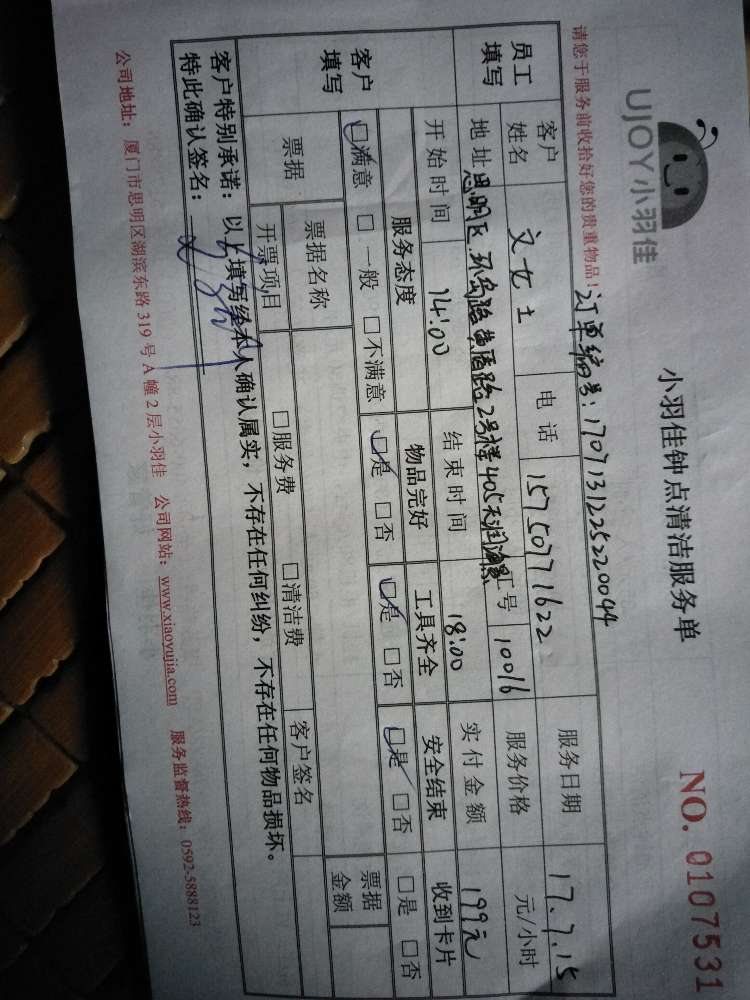 UJOY小羽佳
小羽佳钟点清洁服务单
NO. 0107531
请您于服务前收拾好您的贵重物品!
订单编号:1707131225220044
员工填写
客户姓名 文女士 电话 15750771622 服务日期 17.7.15
地址 思明区环岛路 2号楼405 工号 10016 服务价格 元/小时
开始时间 14:00 结束时间 18:00 实付金额 199元
客户填写
服务态度 物品完好 工具齐全 安全结束 收到卡片
☑满意 □一般 □不满意 ☑是 □否 ☑是 □否 ☑是 □否 □是 □否
票据 票据名称 票据金额
开票项目 □服务费 □清洁费 客户签名
客户特别承诺:以上填写经本人确认属实,不存在任何纠纷,不存在任何物品损坏。
特此确认签名:
公司地址:厦门市思明区湖滨东路319号A幢2层小羽佳 公司网站:www.xiaoyujia.com 服务监督热线:0592-5888123